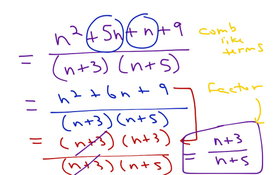 = n² + 5n + n + 9 / (n+3) (n+5)
comb like terms
= n² + 6n + 9 / (n+3) (n+5)
Factor
= (n+3) (n+3) / (n+3) (n+5) = n+3 / n+5